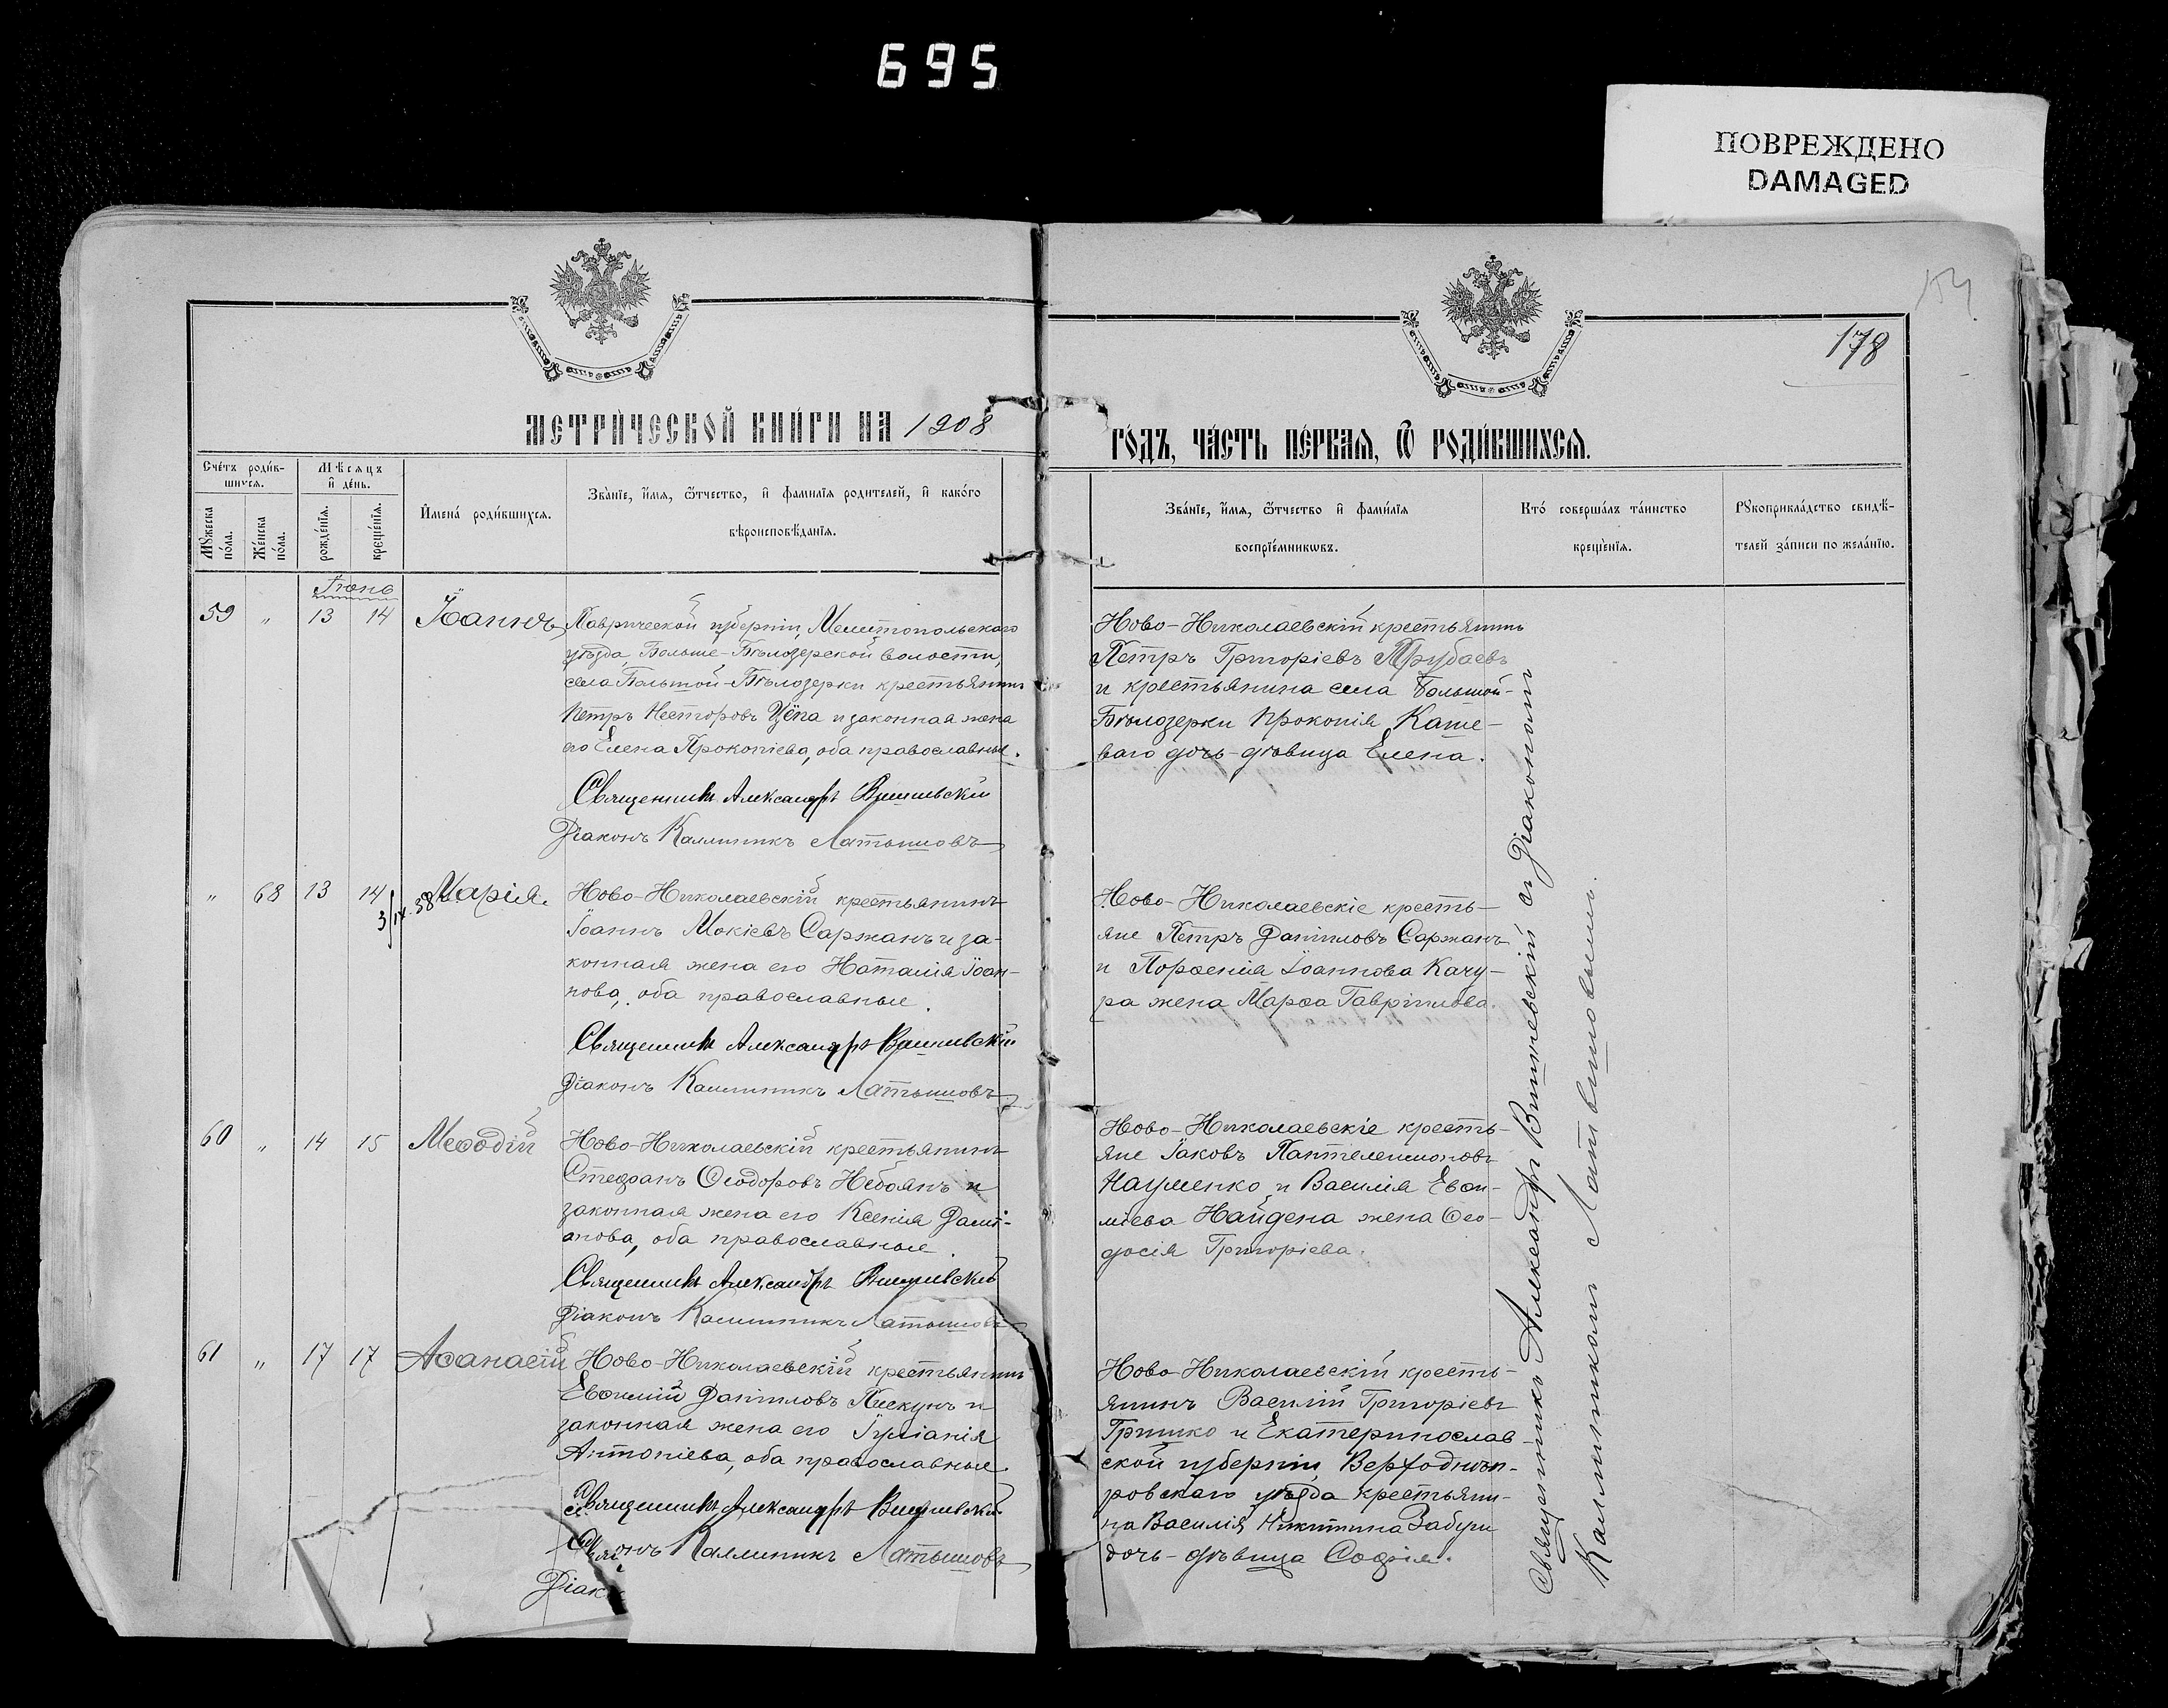 695
ПОВРЕЖДЕНО
DAMAGED
178
МЕТРИ́ЧЕСКОЙ КНИ́ГИ НА 1908
ГО́ДЪ, ЧА́СТЬ ПЕ́РВАЯ, Ѿ РОДИ́ВШИХСЯ.
Сче́тъ роди́в-
шихся.
Мѣсяцъ
и де́нь.
Му́жеска
по́ла.
Же́нска
по́ла.
рожде́нїя.
креще́нїя.
Имена́ роди́вшихся.
Зва́нїе, и́мя, ѻ́тчество, и фамилїя родителей, и како́го
вѣроисповѣ́данїя.
Зва́нїе, и́мя, ѻ́тчество и фами́лїя
воспрїе́мниковъ.
Кто́ соверша́лъ та́инство
креще́нїя.
Рукоприкла́дство свидѣ́-
телей за́писи по жела́нїю.
Іюнь
59 " 13 14 Іоаннъ
Таврической губерніи, Мелитопольскаго
уѣзда, Больше-Бѣлозерской волости,
села Большой-Бѣлозерки крестьянинъ
Петръ Несторовъ Цёпа и законная жена
его Елена Прокопіева, оба православные.
Священникъ Александръ Вишневскій
Діаконъ Каллиникъ Латышовъ
Ново-Николаевскій крестьянинъ
Петръ Григоріевъ Трубаевъ
и крестьянина села Большой-
Бѣлозерки Прокопія Каше-
ваго дочь-дѣвица Елена.
" 68 13 14 Марія.
Ново-Николаевскій крестьянинъ
Іоаннъ Мокіевъ Саржанъ и за-
конная жена его Наталія Іоан-
нова, оба православные.
Священникъ Александръ Вишневскій
Діаконъ Каллиникъ Латышовъ
Ново-Николаевскіе кресть-
яне Петръ Даніиловъ Саржанъ
и Порфенія Іоаннова Качу-
ра жена Марѳа Гавріилова.
60 " 14 15 Меѳодій
Ново-Николаевскій крестьянинъ
Стефанъ Ѳеодоровъ Небоянъ и
законная жена его Ксенія Даміа-
нова, оба православные.
Священникъ Александръ Вишневскій
Діаконъ Каллиникъ Латышовъ
Ново-Николаевскіе кресть-
яне Іаковъ Пантелеимоновъ
Науменко и Василія Евѳи-
міева Найдена жена Ѳео-
досія Григоріева.
61 " 17 17 Аѳанасій
Ново-Николаевскій крестьянинъ
Евѳимій Даніиловъ Пискунъ и
законная жена его Іуліанія
Антоніева, оба православные.
Священникъ Александръ Вишневскій
Каллиникъ Латышовъ
Діак
Ново-Николаевскій кресть-
янинъ Василій Григоріевъ
Гришко и Екатеринослав-
ской губерніи, Верходнѣп-
ровскаго уѣзда крестьяни-
на Василія Никитина Забуги
дочь-дѣвица Софія.
Священникъ Александръ Вишневскій съ Діакономъ
Каллиникомъ Латышовымъ.